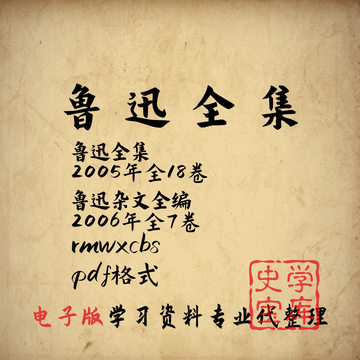 鲁迅全集
鲁迅全集
2005年全18卷
鲁迅杂文全编
2006年全7卷
rmwxcbs
pdf格式
史学
宝库
电子版学习资料专业代整理